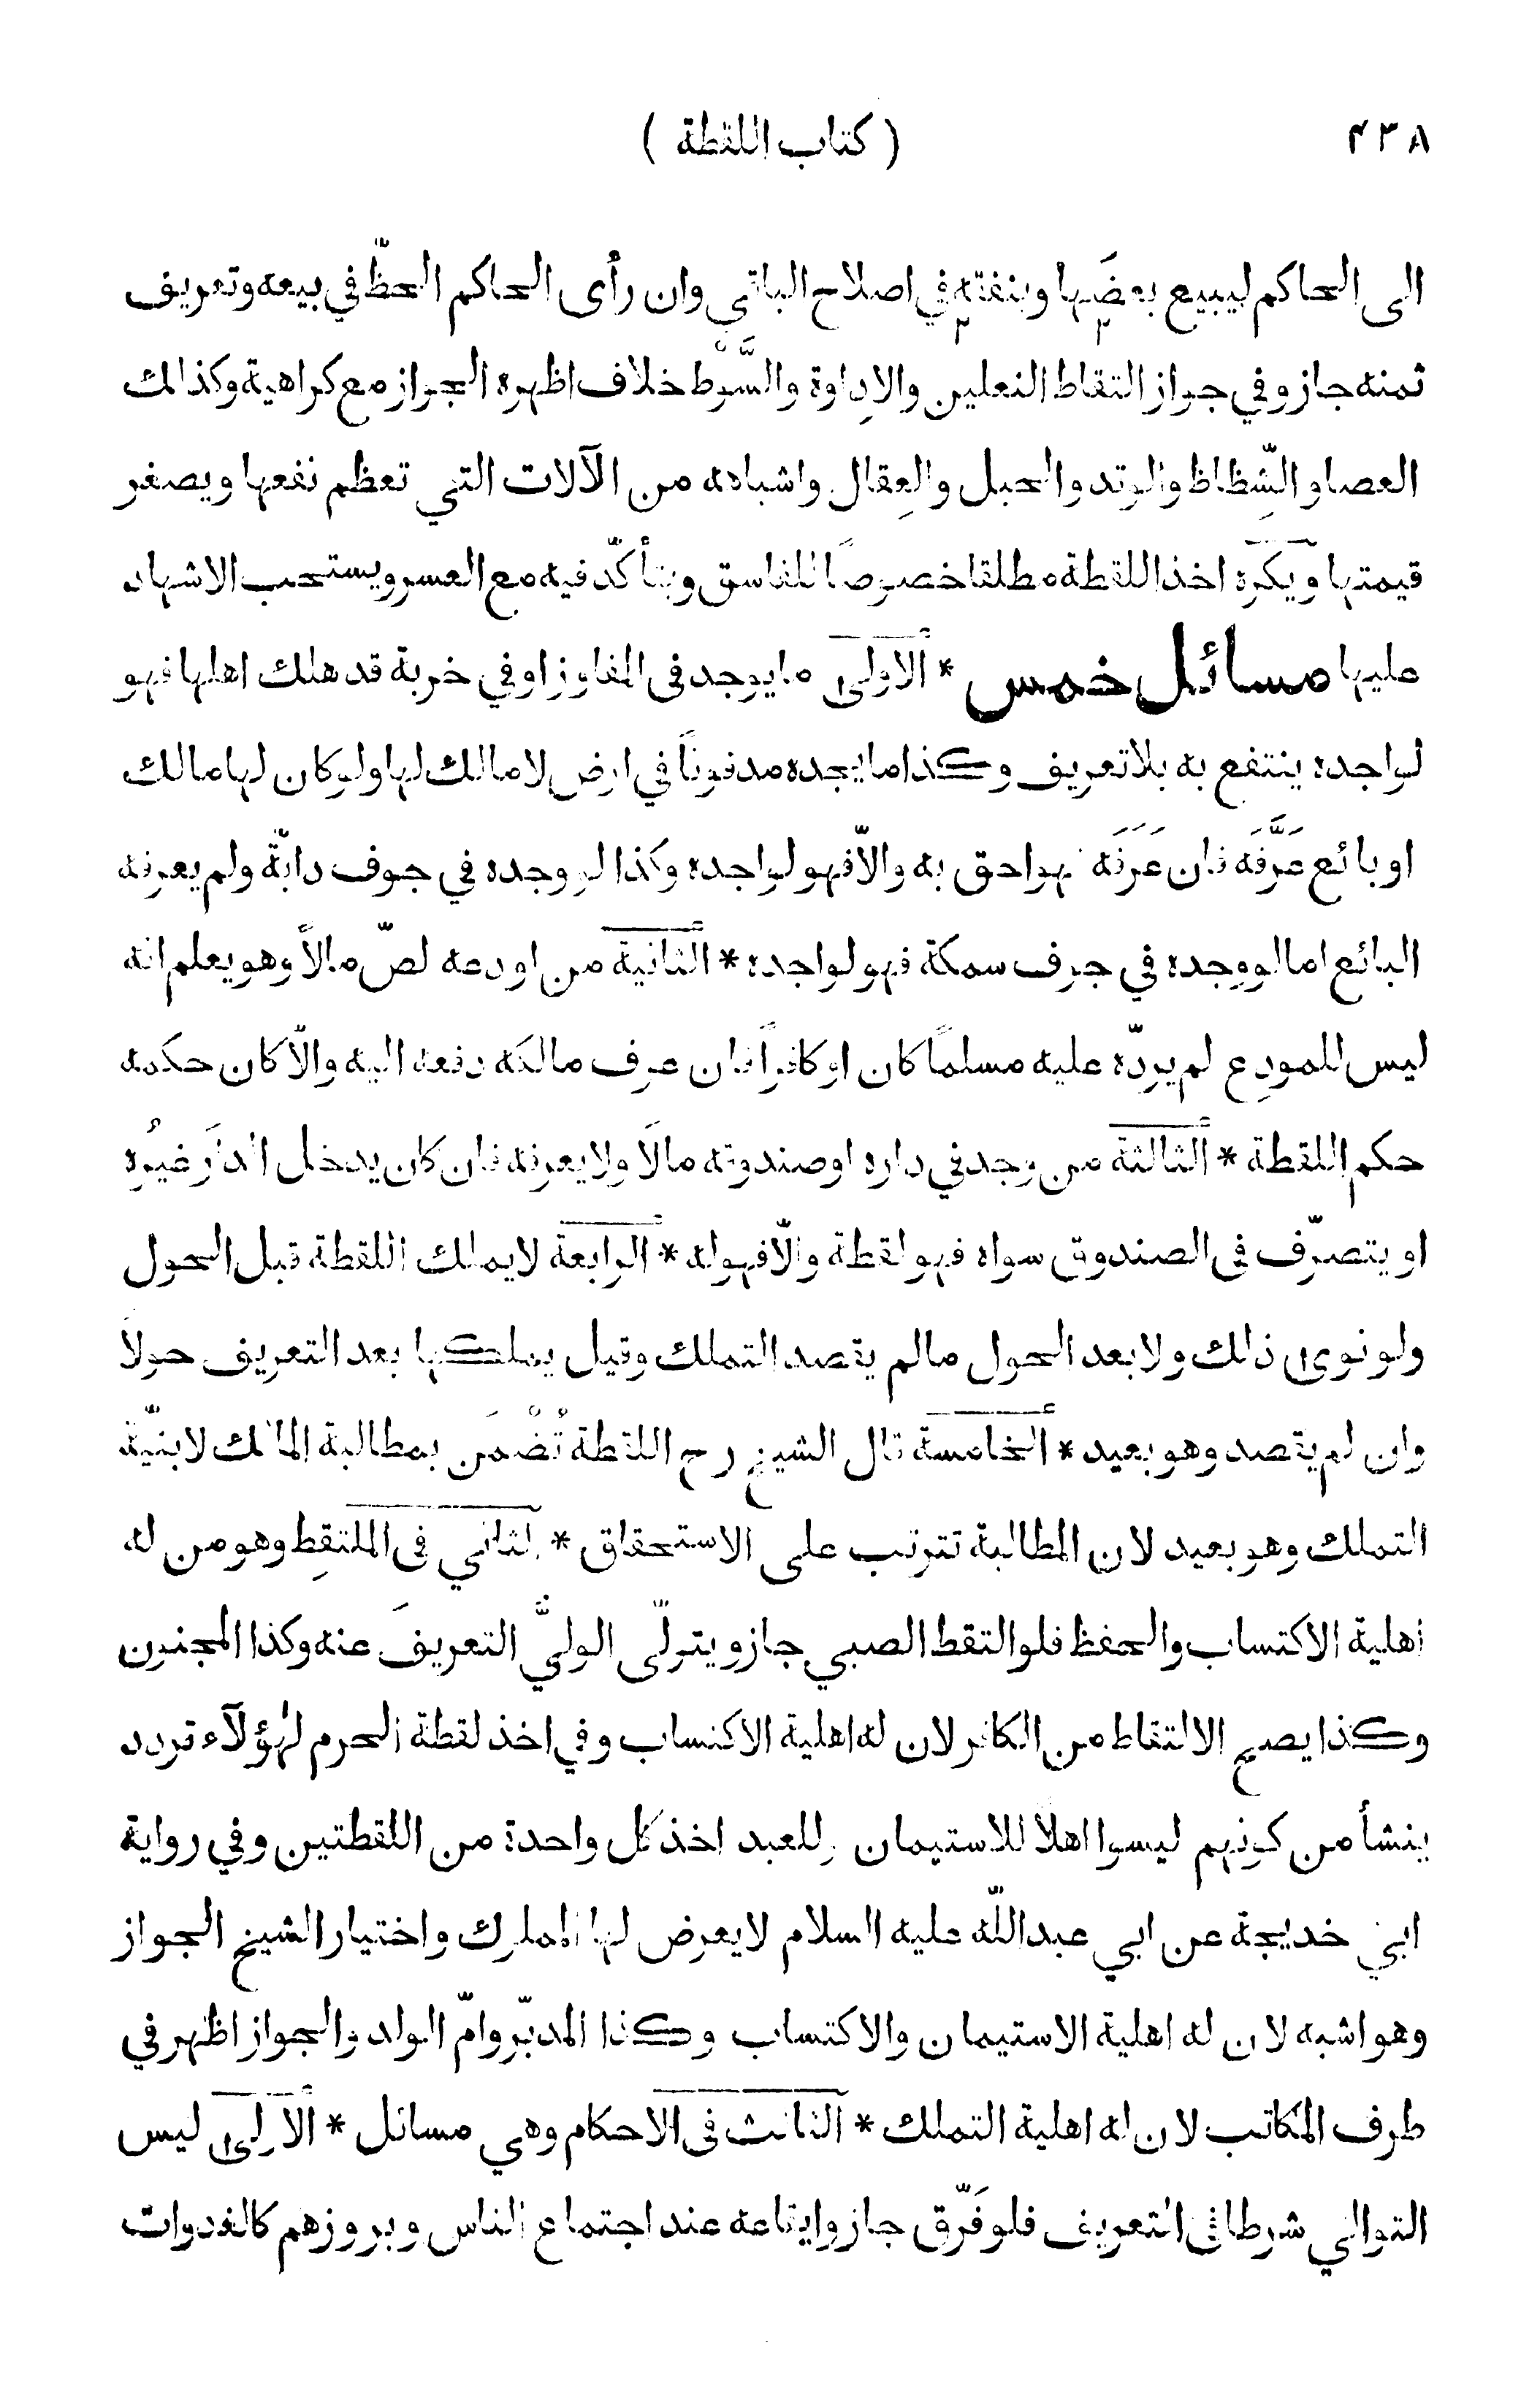 ٤٣٨ ( كتاب اللقطة )
الى الحاكم ليبيع بعضَها وينفقه في اصلاح الباقي وان رأى الحاكم الحظّ في بيعه وتعريف
ثمنه جاز وفي جواز التقاط النعلين والاِداوة والسَّوْط خلاف اظهره الجواز مع كراهية وكذالك
العصا والشِّظاظ والوتد والحبل والعِقال واشباهه من الآلات التي تعظم نفعها ويصغر
قيمتها ويكره اخذ اللقطة مطلقا خصوصاً للفاسق ويتأكّد فيه مع العسر ويستحب الاشهاد
عليها مسائل خمس * الاولى ما يوجد في المفاوز او في خربة قد هلك اهلها فهو
لواجده ينتفع به بلا تعريف وكذا ما يجده مدفوناً في ارض لا مالك لها ولو كان لها مالك
او بائع عَرَّفَه فان عَرَفَه فهو احق به والاّ فهو لواجده وكذا لو وجده في جوف دابّة ولم يعرفه
البائع اما لو وجده في جوف سمكة فهو لواجده * الثانية من اودعه لصّ مالاً وهو يعلم انه
ليس للمودِع لم يردّه عليه مسلماً كان او كافراً فان عرف مالكه دفعه اليه والاّ كان حكمه
حكم اللقطة * الثالثة من وجد في داره او صندوقه مالاً ولا يعرفه فان كان يدخل الدارَ غيرُه
او يتصرّف في الصندوق سواه فهو لقطة والاّ فهو له * الرابعة لا يملك اللقطة قبل الحول
ولو نوى ذالك ولا بعد الحول ما لم يقصد التملك وقيل يملكها بعد التعريف حولاً
وان لم يقصد وهو بعيد * الخامسة قال الشيخ رح اللقطة تُضْمَن بمطالبة المالك لا بنيّة
التملك وهو بعيد لان المطالبة تترتب على الاستحقاق * الثاني في الملتقِط وهو من له
اهلية الاكتساب والحفظ فلو التقط الصبي جاز ويتولّى الوليُّ التعريفَ عنه وكذا المجنون
وكذا يصح الالتقاط من الكافر لان له اهلية الاكتساب وفي اخذ لقطة الحرم لهؤلآء تردد
ينشأ من كونهم ليسوا اهلاً للاستيمان وللعبد اخذ كل واحدة من اللقطتين وفي رواية
ابي خديجة عن ابي عبد اللّه عليه السلام لا يعرض لها المملوك واختيار الشيخ الجواز
وهو اشبه لان له اهلية الاستيمان والاكتساب وكذا المدبّر وامّ الولد والجواز اظهر في
طرف المكاتب لان له اهلية التملك * الثالث في الاحكام وهي مسائل * الاولى ليس
التوالي شرطا في التعريف فلو فَرّق جاز وايقاعه عند اجتماع الناس وبروزهم كالغدوات